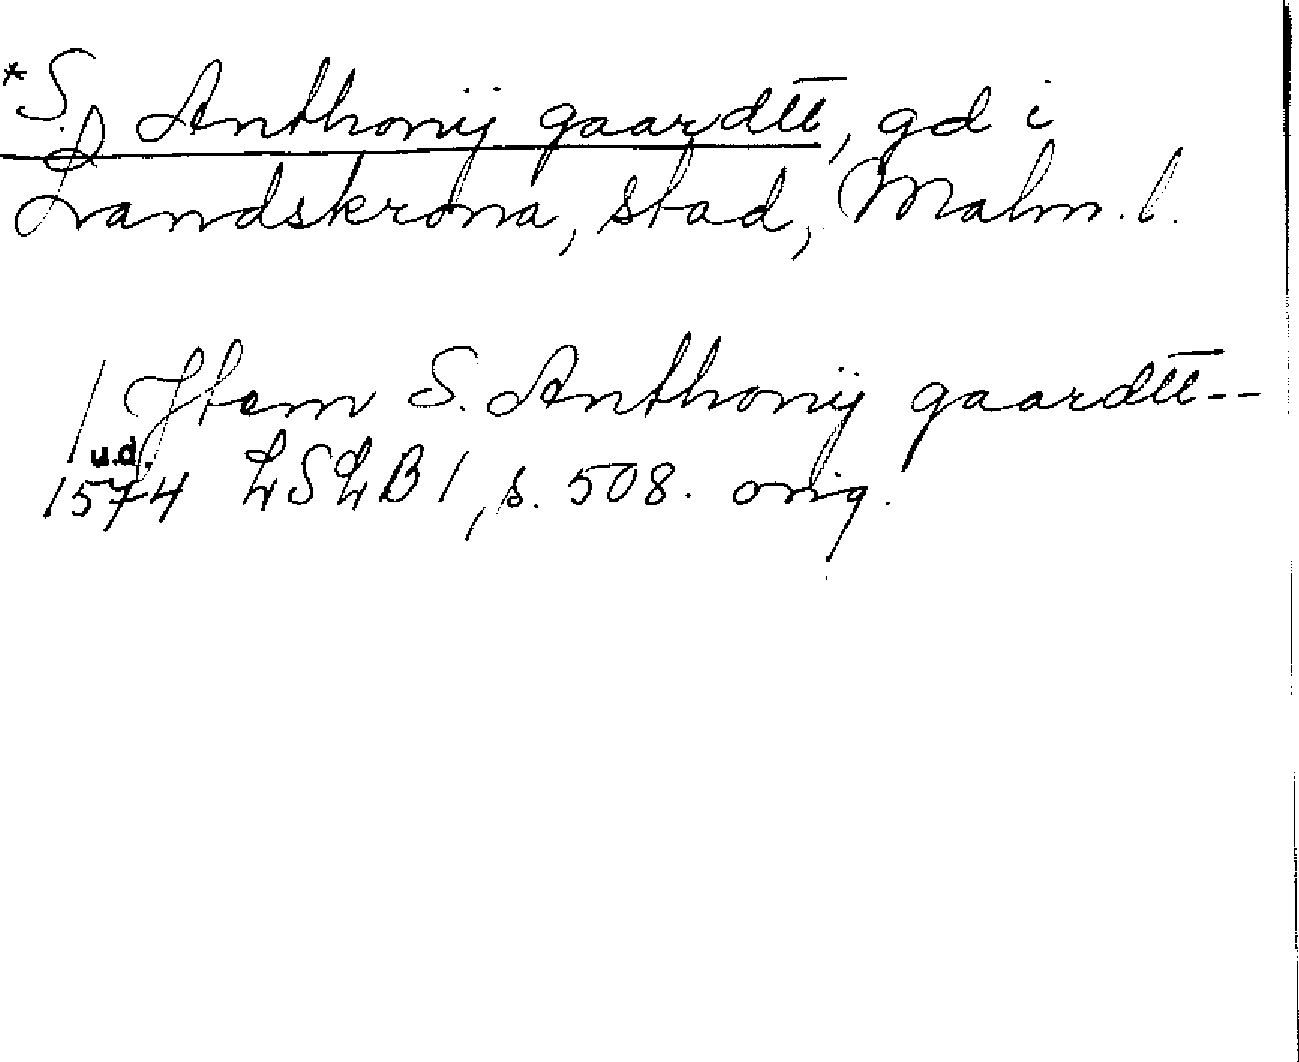 *S. Anthonij gaardtt, gd i
Landskrona, stad, Malm. l.
/ Jtem S. Anthonij gaardtt--
u.d.
1574 LSLB 1, s. 508. orig.